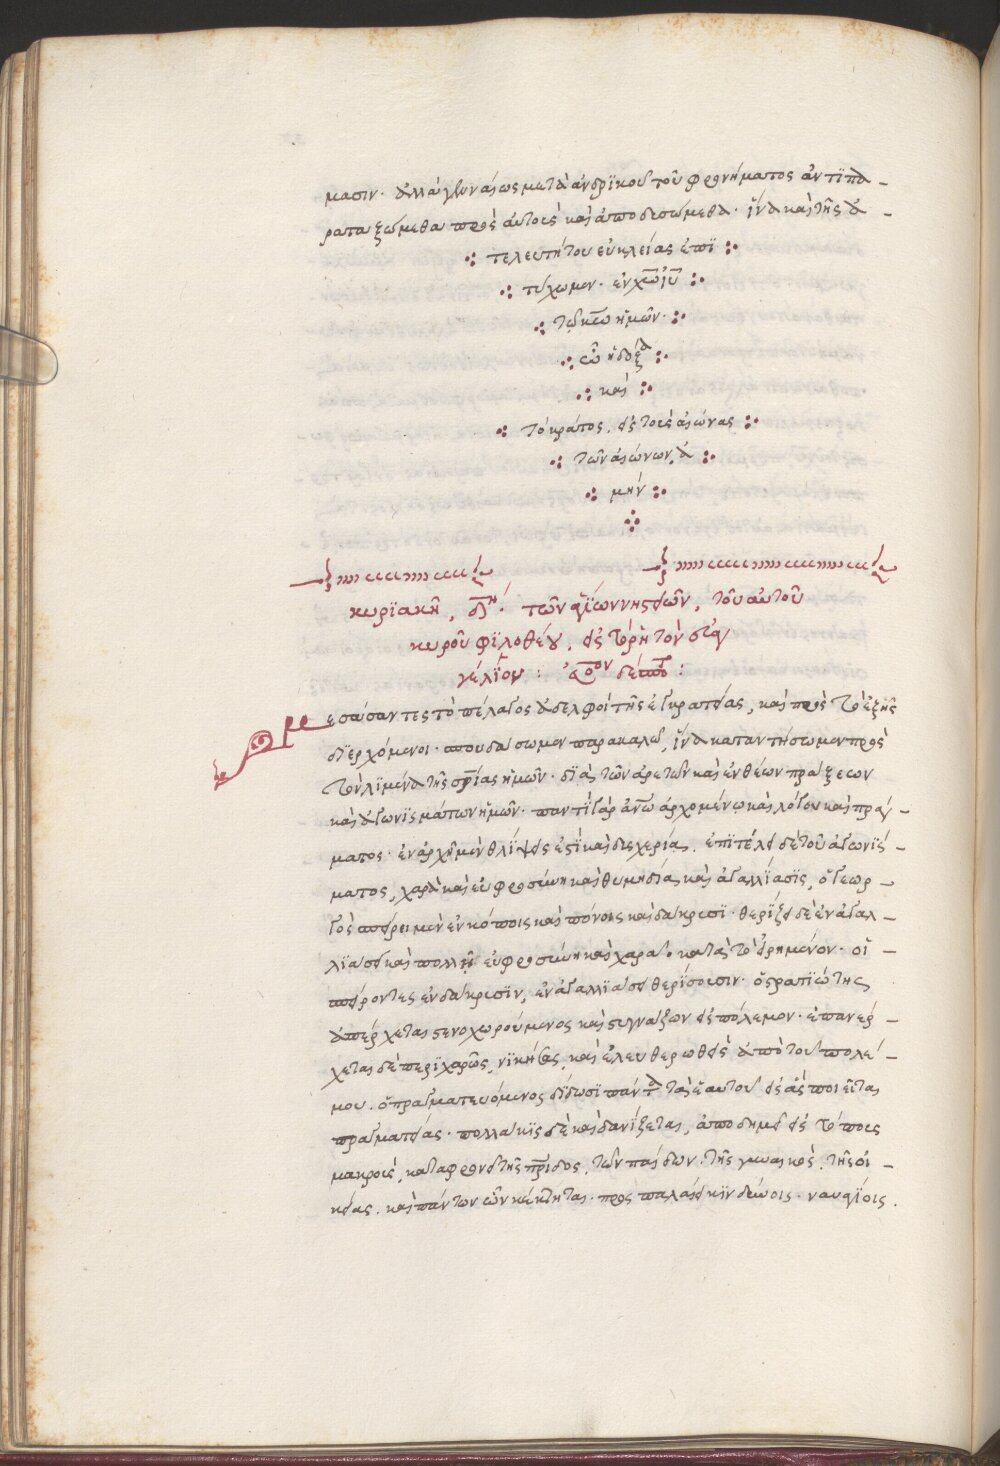 μασιν· ἀλλὰ γενναίως μετὰ ἀνδρϊκοῦ τοῦ φρονήματος ἀντϊπα -
ραταξώμεθα πρὸς αὐτοὺς καὶ ἀποδυσώμεθα· ἵνα καὶ τῆς ἀ -
τελευτήτου εὐκλείας ἐπϊ
τύχωμεν· ἐν χ̅ω̅ ἰ̅υ̅
τῶ κ̅ω̅ ἡμῶν·
ὧ ἡ δόξα
καὶ
τὸ κράτος, εἰς τοὺς αἰώνας
τῶν αἰώνων, ἀ
μήν
κυρϊακῆ, τῶν τοῦ αὐτοῦ
κυροῦ φϊλοθέου, εἰς τὸ ῥητὸν τοῦ εὐαγ
γελΐου:
Μεσάσαντες τὸ πέλαγος ἀδελφοὶ τῆς ἐγκρατείας, καὶ πρὸς τὸ ἑξῆς
δϊερχόμενοι· σπουδάσωμεν παρακαλῶ, ἵνα καταντήσωμεν πρὸς
τὸν λϊμένα τῆς σ̅ρ̅ίας ἡμῶν· δϊὰ τῶν ἀρετῶν καὶ ἐνθέων πράξεων
καὶ ἀγωνϊσμάτων ἡμῶν· παντὶ γὰρ ἀν̅ω̅ ἀρχομένῳ καὶ λόγου καὶ πράγ -
ματος· ἐν ἀρχῆ μὲν θλίψεις ἐστῒ καὶ δυσχερία, ἐπϊ τέλει δὲ τοῦ ἀγωνΐσ -
ματος, χαρὰ καὶ εὐφροσύνη καὶ θυμηδία καὶ ἀγαλλΐασϊς, ὁ γεωρ -
γὸς σπείρει μὲν ἐν κόποις καὶ πόνοις καὶ δάκρυσϊ· θερΐζει δὲ ἐν ἀγαλ -
λϊάσει καὶ πολλῆ εὐφροσύνη καὶ χαρᾶ· κατὰ τὸ εἰρημένον· οἱ -
σπείροντες ἐν δάκρυσϊν, ἐν ἀγαλλϊάσει θερΐσουσιν· ὁ στρατϊώτης
ἀπέρχεται στενοχωρούμενος καὶ στυγνάζων εἰς πόλεμον· ἐπανέρ -
χεται δὲ περϊχαρῶς, νϊκήσας, καὶ ἐλευθερωθεὶς ἀπὸ τοῦ πολέ -
μου. ὁ πραγματευόμενος δΐδωσϊ πάντα τὰ ἑαυτοῦ εἰς ἃς ποιεῖται
πραγματείας· πολλάκϊς δὲ καὶ δανΐζεται, ἀποδημεῖ εἰς τόπους
μακροὺς, καταφρονεῖ τῆς π̅ρ̅ίδος, τῶν παίδων, τῆς γυναικὸς, τῆς οἰ -
κείας. καὶ πάντων ὧν κέκτηται· προσπαλαίει κϊνδύνοις· ναυαγΐοις.